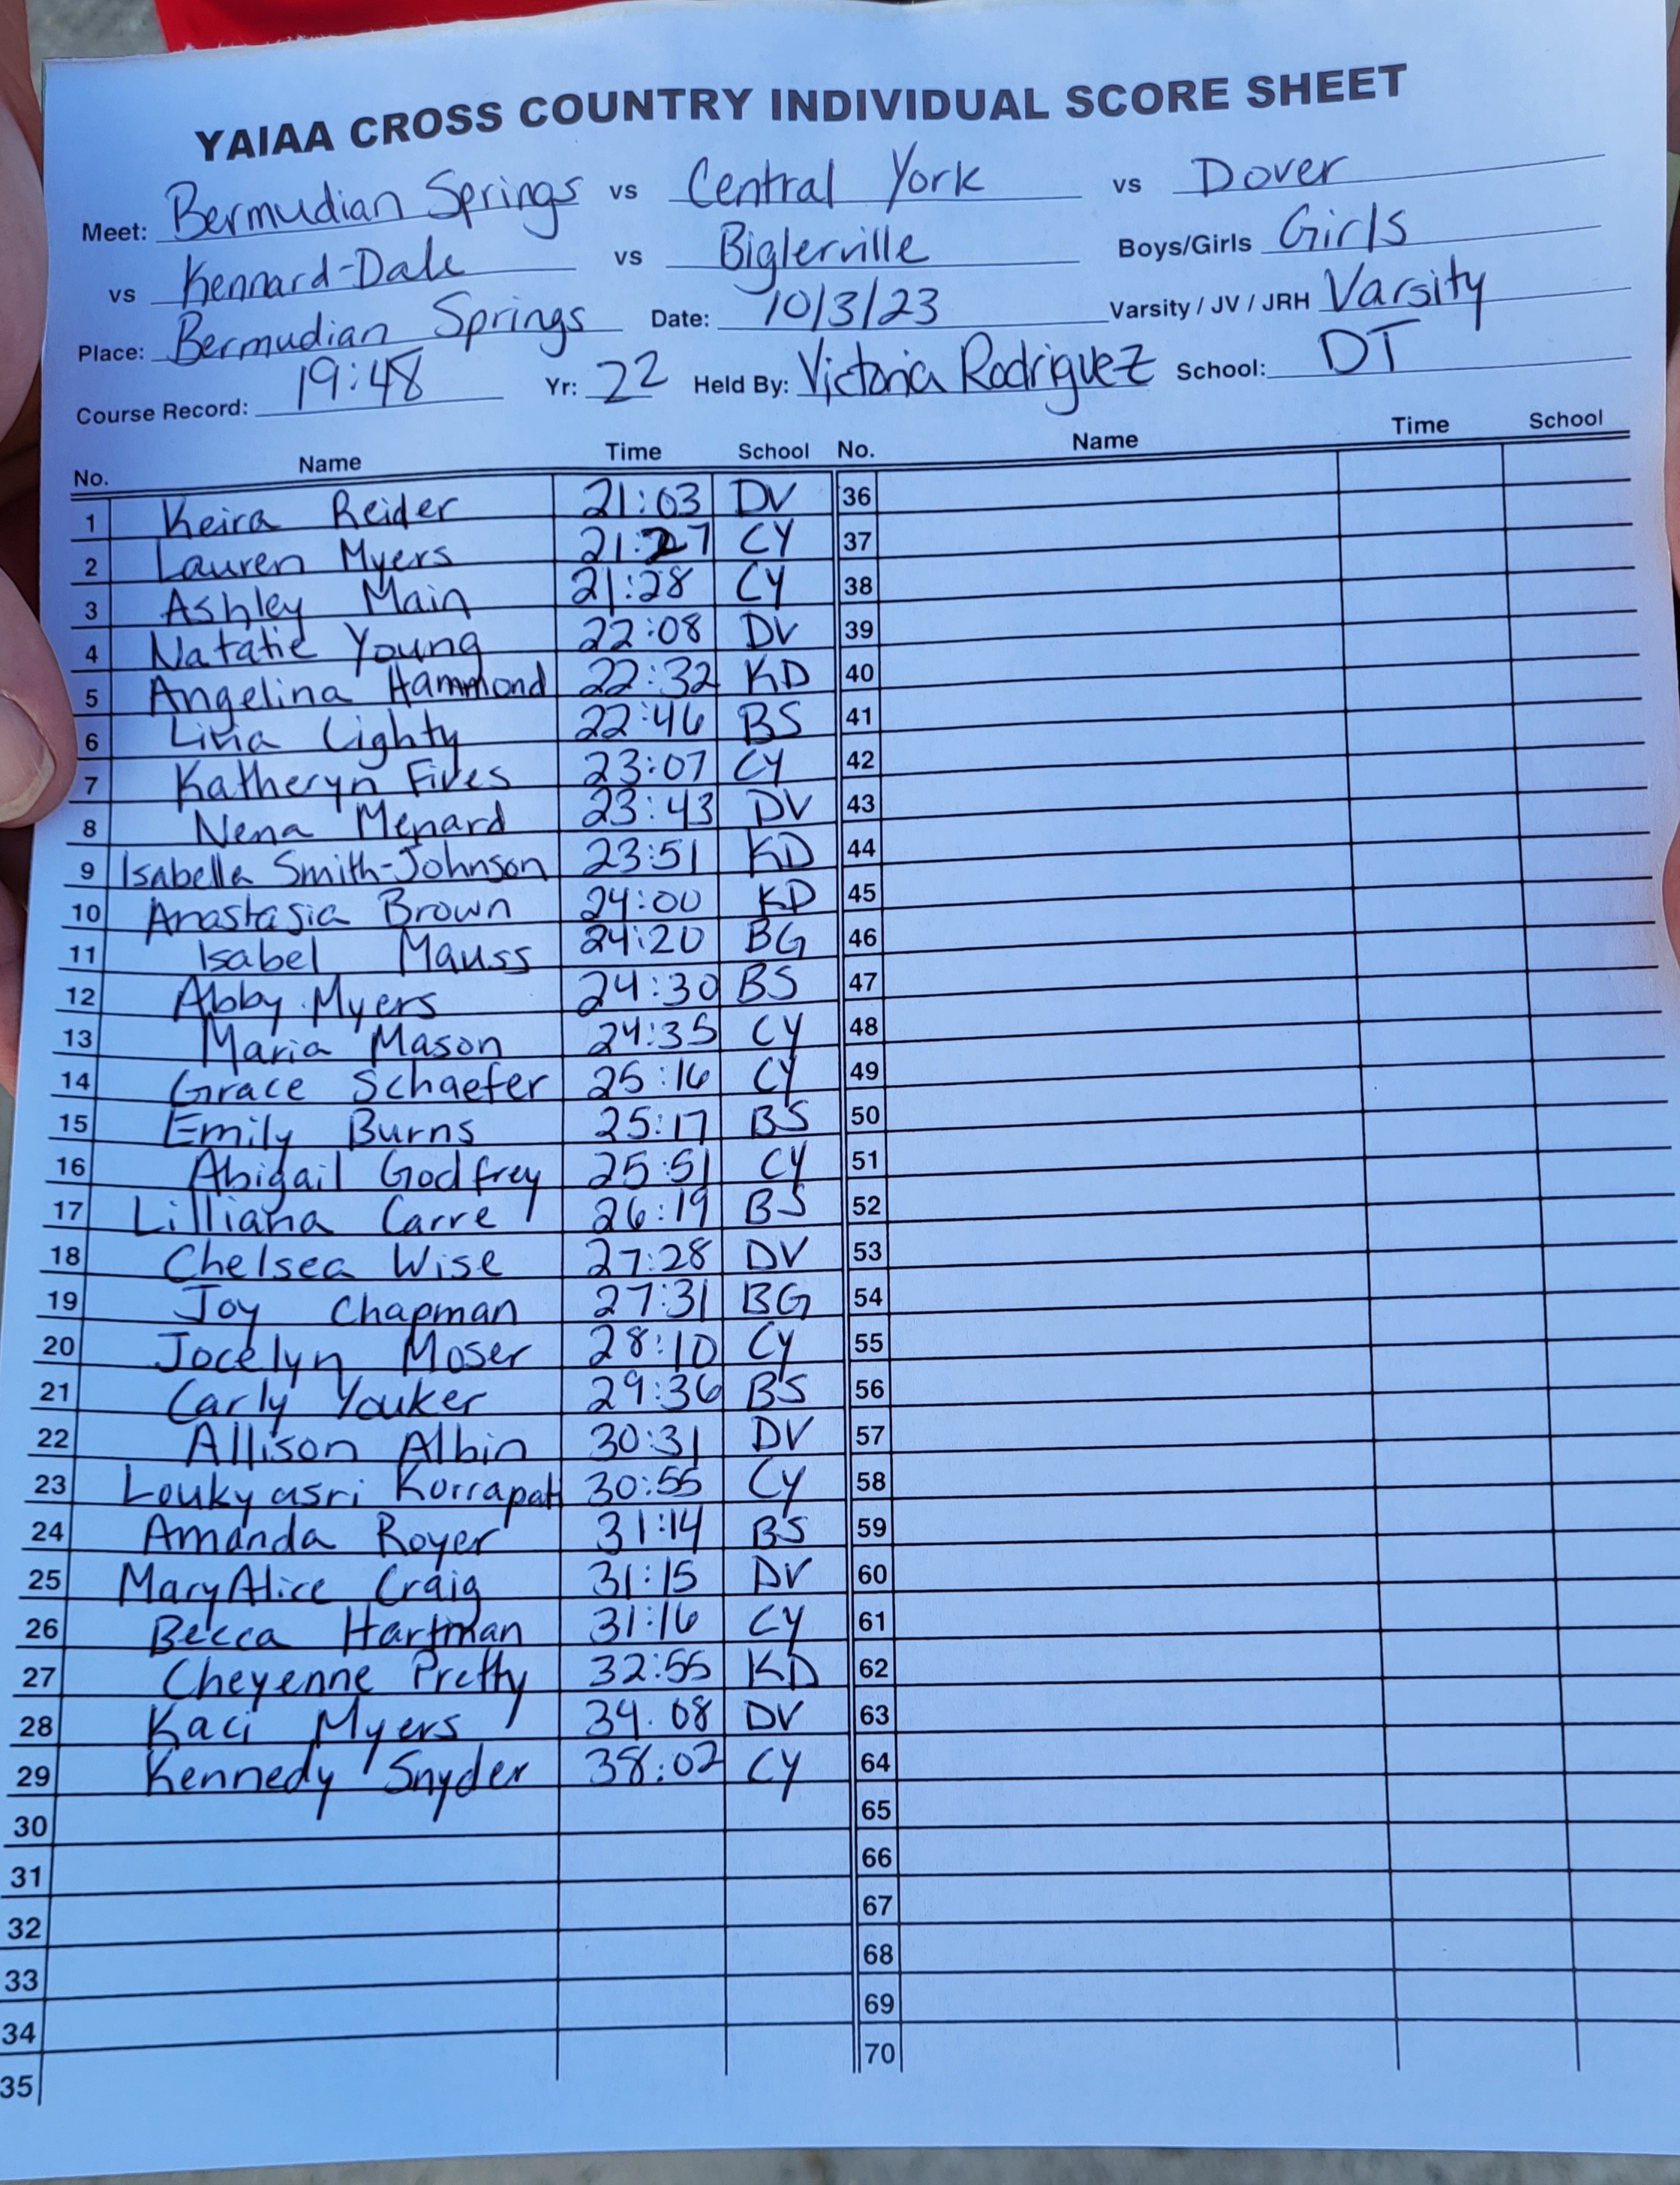 YAIAA CROSS COUNTRY INDIVIDUAL SCORE SHEET
Meet: Bermudian Springs vs Central York vs Dover
vs Kennard-Dale vs Biglerville Boys/Girls Girls
Place: Bermudian Springs Date: 10/3/23 Varsity / JV / JRH Varsity
Course Record: 19:48 Yr: 22 Held By: Victoria Rodriguez School: DT
No. Name Time School No. Name Time School
1 Keira Reider 21:03 DV 36
2 Lauren Myers 21:27 CY 37
3 Ashley Main 21:28 CY 38
4 Natatie Young 22:08 DV 39
5 Angelina Hammond 22:32 KD 40
6 Livia Lighty 22:46 BS 41
7 Katheryn Fives 23:07 CY 42
8 Nena Menard 23:43 DV 43
9 Isabella Smith-Johnson 23:51 KD 44
10 Anastasia Brown 24:00 KD 45
11 Isabel Mauss 24:20 BG 46
12 Abby Myers 24:30 BS 47
13 Maria Mason 24:35 CY 48
14 Grace Schaefer 25:16 CY 49
15 Emily Burns 25:17 BS 50
16 Abigail Godfrey 25:51 CY 51
17 Lilliana Carre 26:19 BS 52
18 Chelsea Wise 27:28 DV 53
19 Joy Chapman 27:31 BG 54
20 Jocelyn Moser 28:10 CY 55
21 Carly Youker 29:36 BS 56
22 Allison Albin 30:31 DV 57
23 Loukyasri Korrapati 30:55 CY 58
24 Amanda Royer 31:14 BS 59
25 MaryAlice Craig 31:15 DV 60
26 Becca Hartman 31:16 CY 61
27 Cheyenne Pretty 32:55 KD 62
28 Kaci Myers 34.08 DV 63
29 Kennedy Snyder 38:02 CY 64
30 65
31 66
32 67
33 68
34 69
35 70